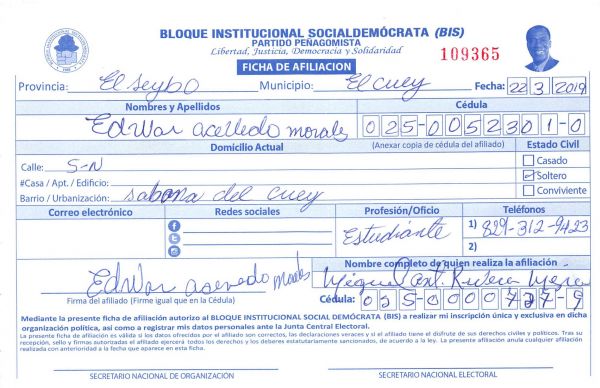 BLOQUE INSTITUCIONAL SOCIALDEMÓCRATA (BIS)
PARTIDO PEÑAGOMISTA
Libertad, Justicia, Democracia y Solidaridad
FICHA DE AFILIACION
109365
Provincia: El seybo Municipio: El cuey Fecha: 22 3 2019
Nombres y Apellidos Cédula
Edwar acevedo morales 025-0052301-0
Domicilio Actual (Anexar copia de cédula del afiliado) Estado Civil
Calle: S-N Casado
#Casa / Apt. / Edificio: Soltero
Barrio / Urbanización: sabana del cuey Conviviente
Correo electrónico Redes sociales Profesión/Oficio Teléfonos
Estudiante 1) 829-312-9423
2)
Nombre completo de quien realiza la afiliación
Edwar acevedo morales Rivera
Firma del afiliado (Firme igual que en la Cédula) Cédula: 025-0000727-9
Mediante la presente ficha de afiliación autorizo al BLOQUE INSTITUCIONAL SOCIAL DEMÓCRATA (BIS) a realizar mi inscripción única y exclusiva en dicha
organización política, así como a registrar mis datos personales ante la Junta Central Electoral.
La presente ficha de afiliación es válida si los datos ofrecidos por el afiliado son correctos, las declaraciones veraces y si el afiliado tiene el disfrute de sus derechos civiles y políticos. Tras su
recepción, sello y firmas autorizadas el afiliado ejercerá todos los derechos y los deberes estatutariamente sancionados, de acuerdo a la ley. La presente afiliación anula cualquier afiliación
realizada con anterioridad a la fecha que aparece en esta ficha.
SECRETARIO NACIONAL DE ORGANIZACIÓN SECRETARIO NACIONAL ELECTORAL